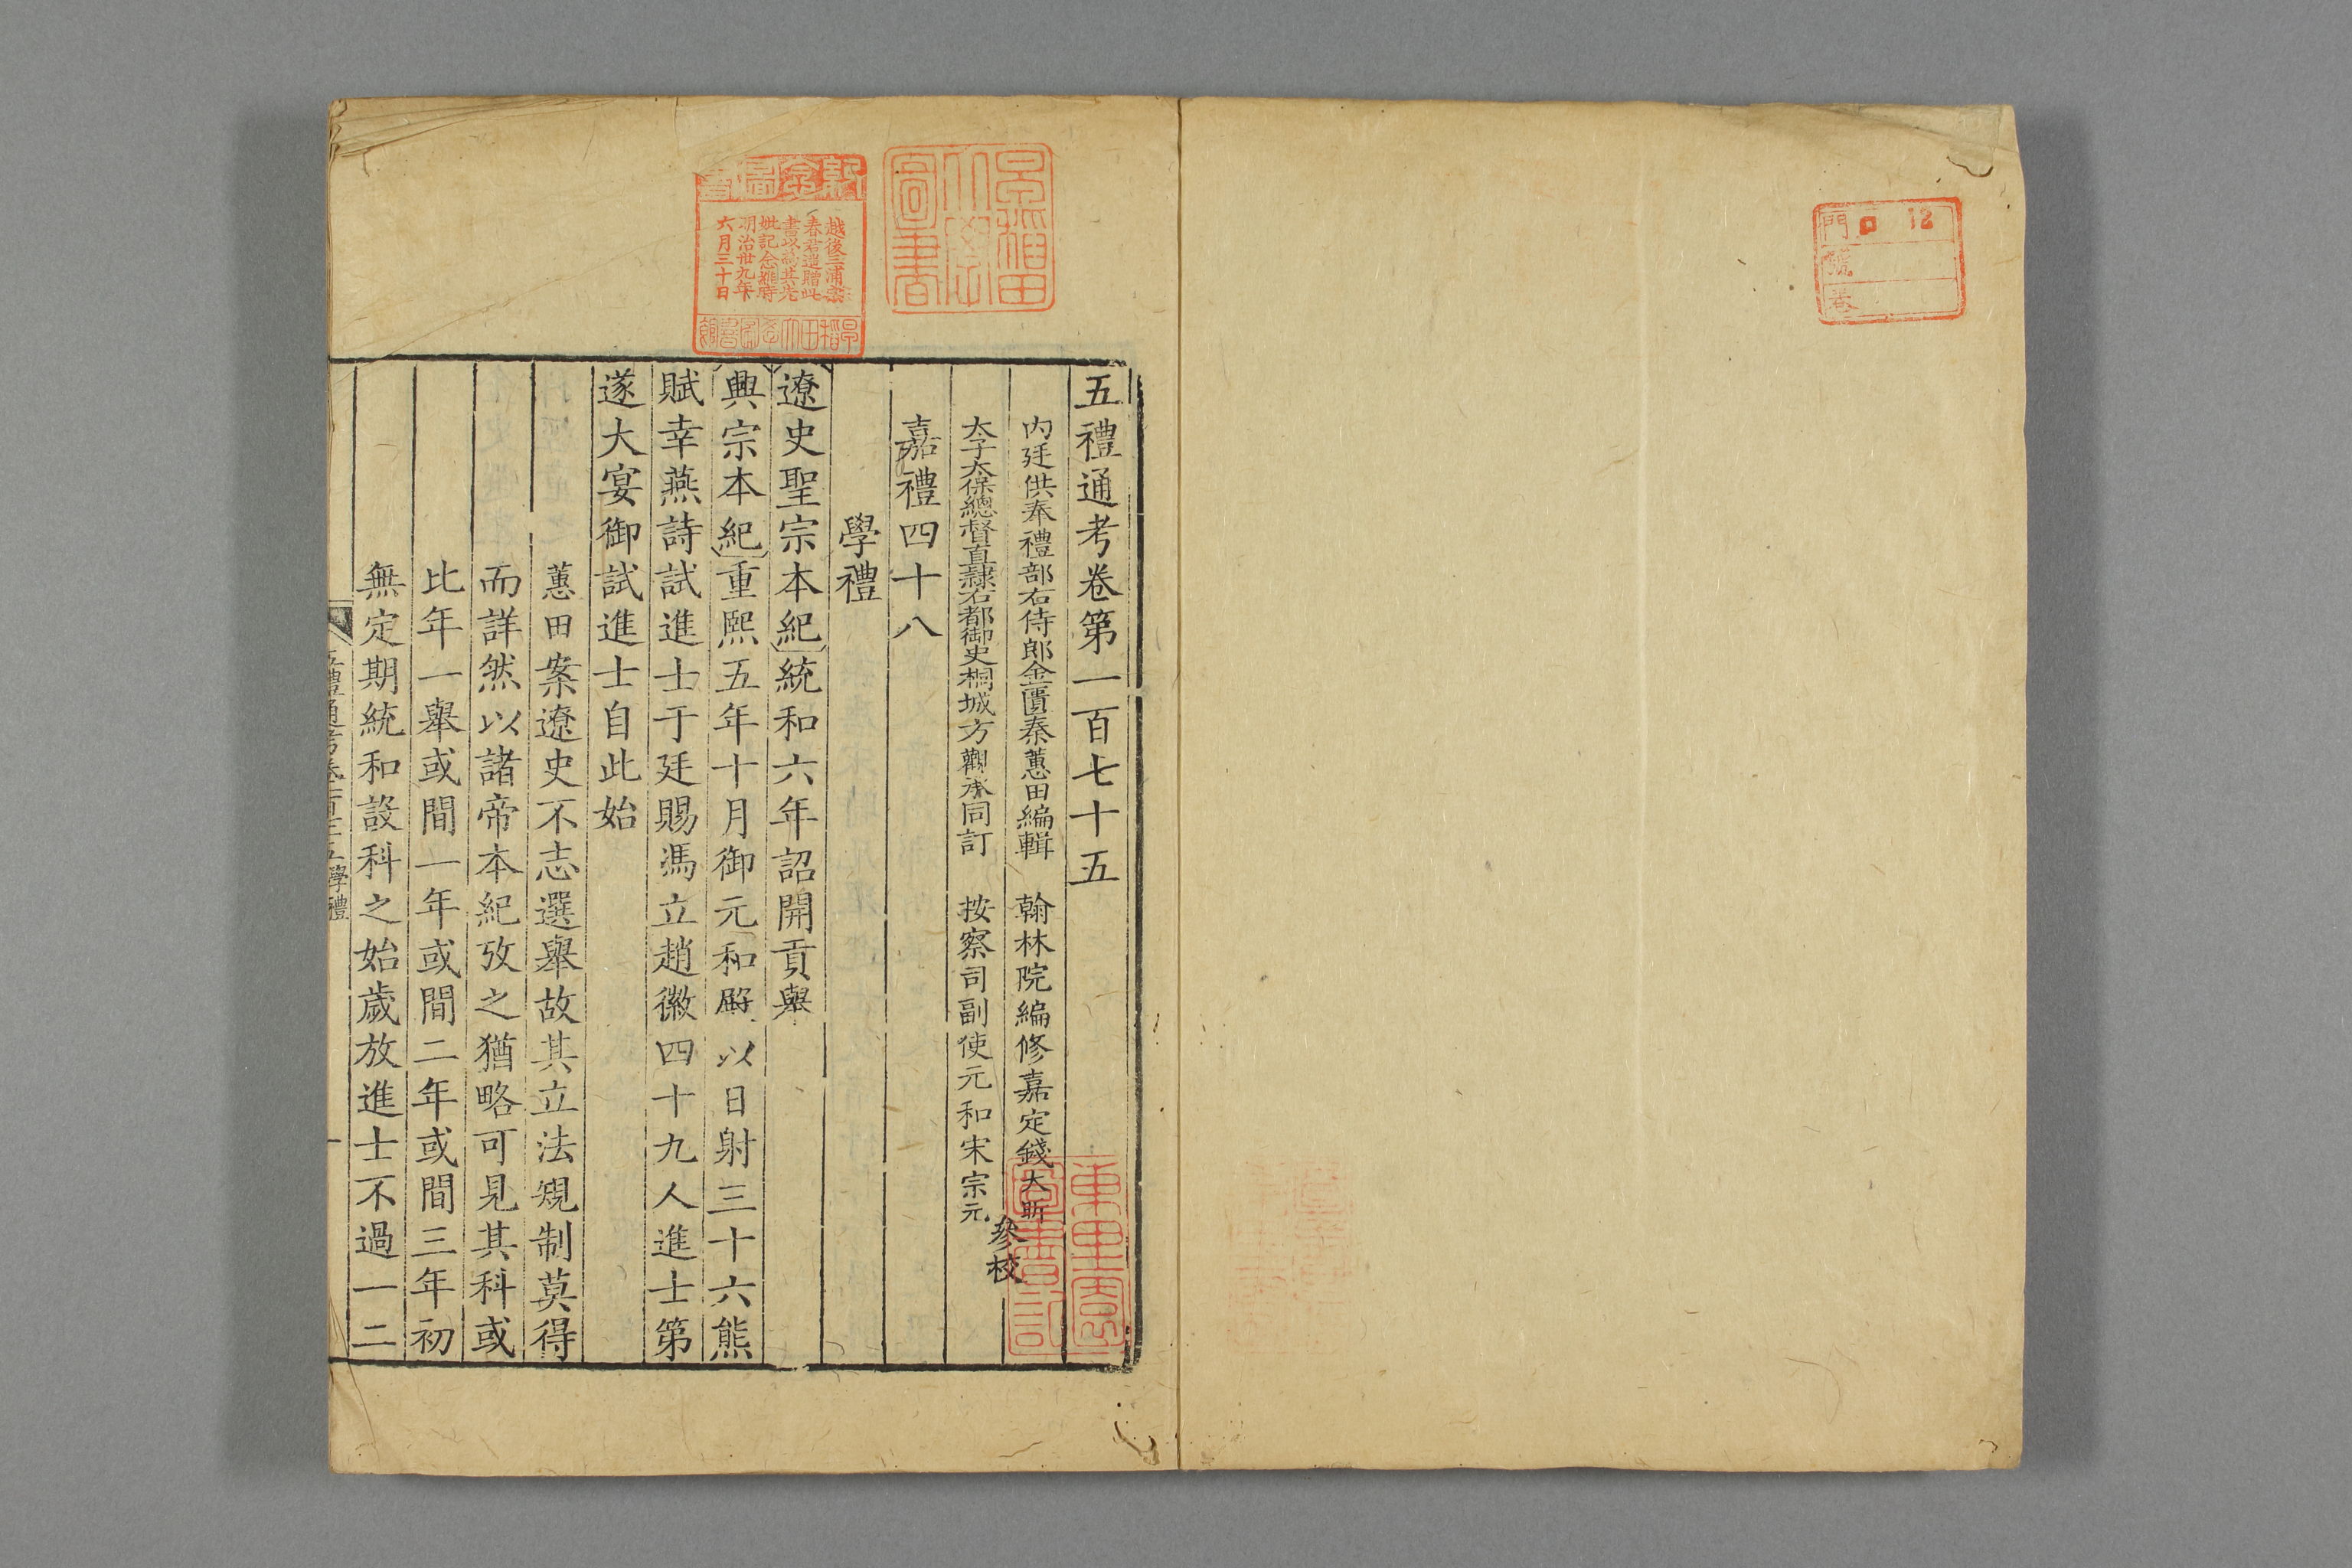 門 口 12
號
卷
五禮通考卷第一百七十五
內廷供奉禮部右侍郎金匱秦蕙田編輯 翰林院編修嘉定錢大昕
太子太保總督直隸右都御史桐城方觀承同訂 按察司副使元和宋宗元
參校
嘉禮四十八
學禮
遼史聖宗本紀統和六年詔開貢舉
興宗本紀重熙五年十月御元和殿以日射三十六熊
賦幸燕詩試進士于廷賜馮立趙徽四十九人進士第
遂大宴御試進士自此始
蕙田案遼史不志選舉故其立法規制莫得
而詳然以諸帝本紀攷之猶略可見其科或
比年一舉或間一年或間二年或間三年初
無定期統和設科之始歲放進士不過一二
五禮通考卷一百七十五學禮
一
早稻田大學圖書
越後三浦宗
春君遙贈此
書以為其先
妣記念維時
明治卅九年
六月三十日
早稻田大學圖書館